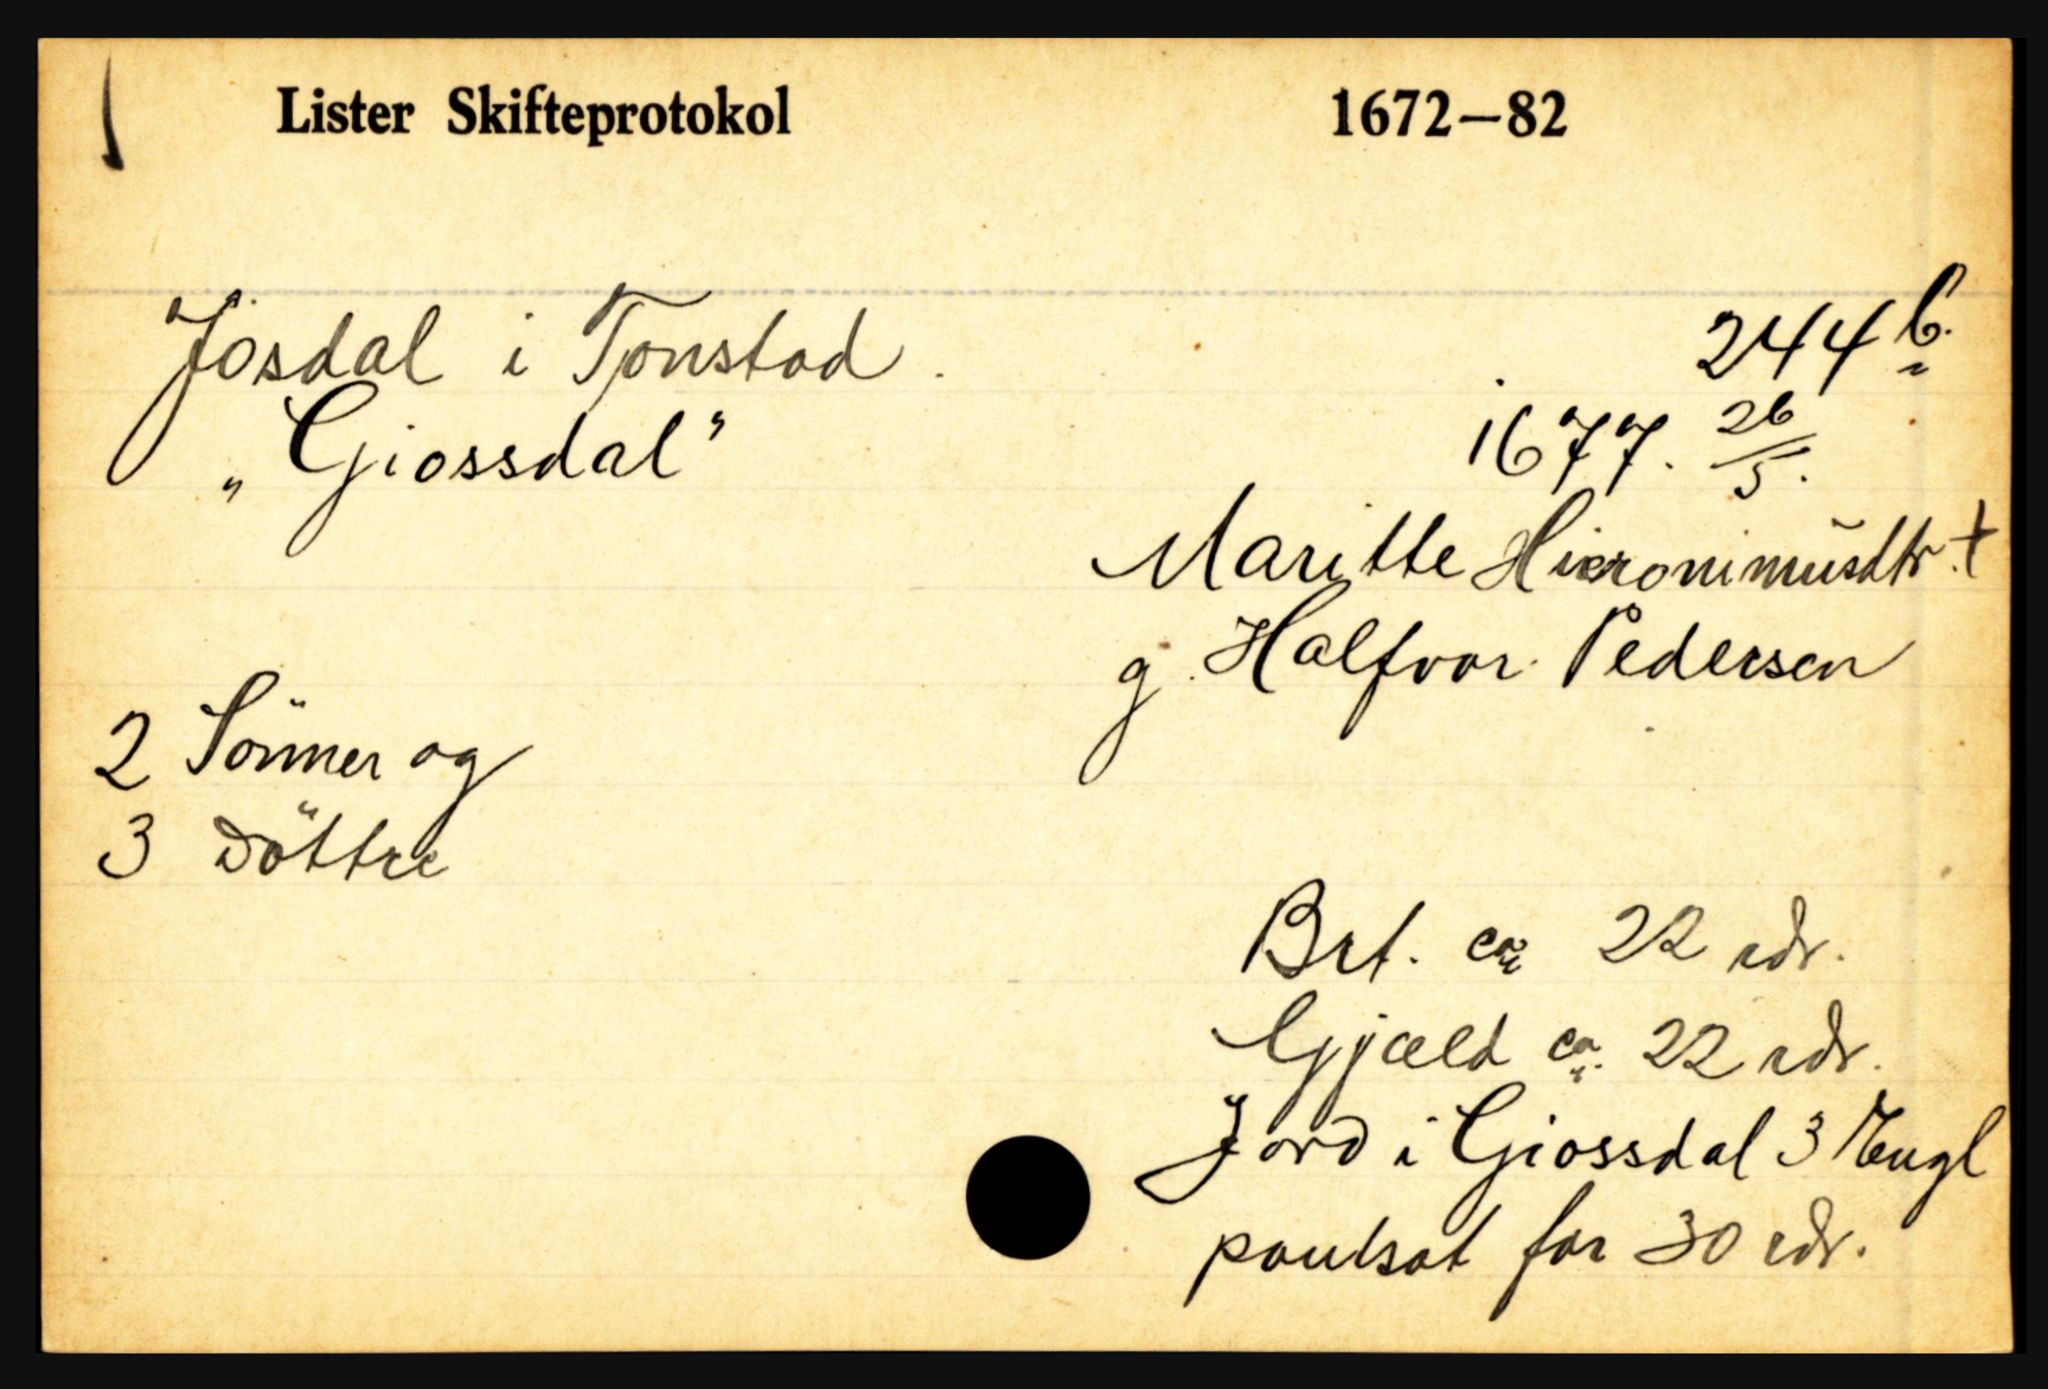 Lister Skifteprotokol 1672—82
Jösdal i Tonstad. 244 b.
„Giossdal" 1677. 26/5.
Maritte Hieronimusdtr. †
g. Halfvor Pedersen
2 Sönner og
3 Döttre
Brt. ca 22 rdr.
Gjæld ca. 22 rdr.
Jord i Giossdal 3 Engl
pantsat for 30 rdr.